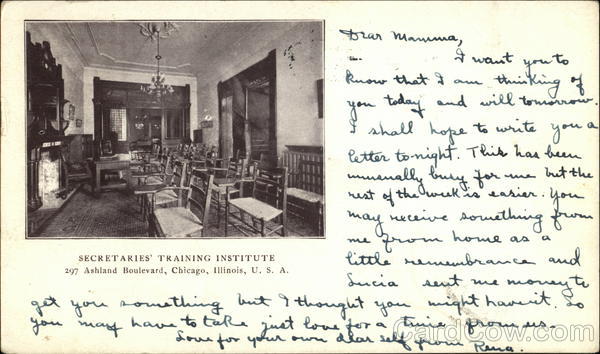 Dear Mamma,
I want you to
know that I am thinking of
you today and will tomorrow.
I shall hope to write you a
letter tonight. This has been
unusually busy for me but the
rest of the week is easier. You
may receive something from
me from home as a
little remembrance and
Lucia sent me money to
get you something but I thought you might have it. So
you may have to take just love for a time from us.
Love for your own dear self from Rena.
SECRETARIES' TRAINING INSTITUTE
297 Ashland Boulevard, Chicago, Illinois, U. S. A.
CardCow.com